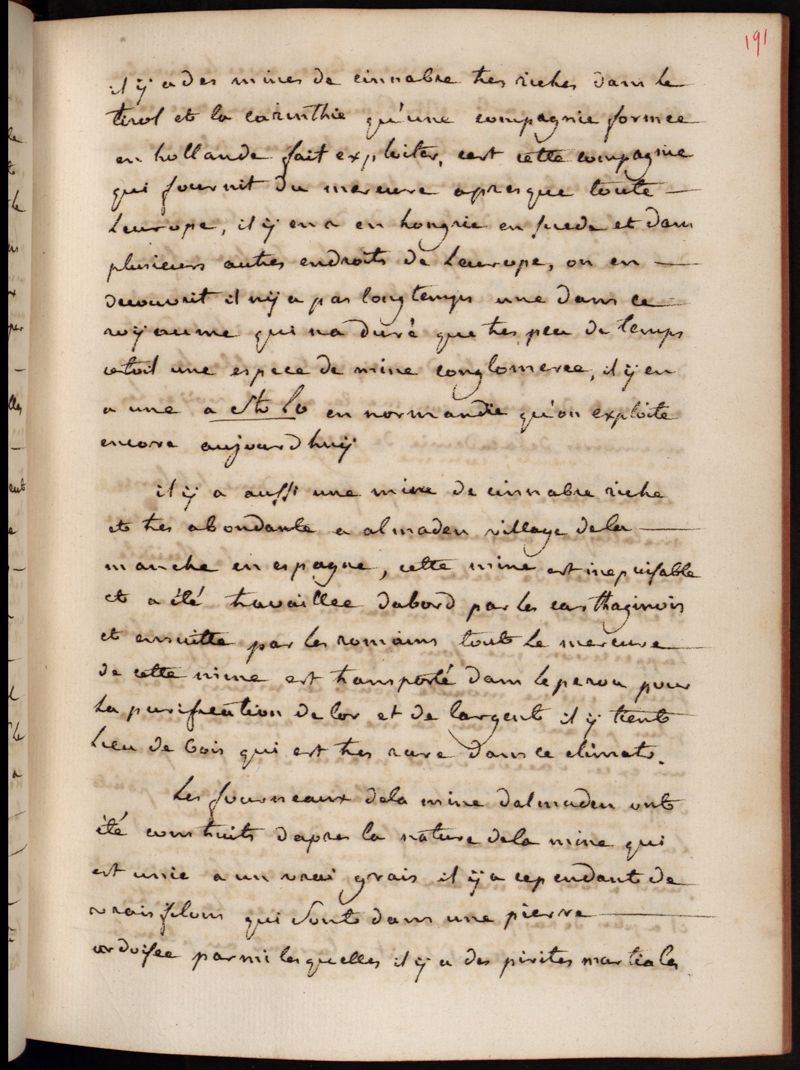 191
il y a des mines de cinnabre tres riches dans le
tirol et la carinthie qu'une compagnie formee
en hollande fait exploiter, cest cette compagnie
qui fournit du mercure apresque toute
Leurope, il y en a en hongrie en suede et dans
plusieurs autres endroits de Leurope, on en
decouvrit il niy a pas longtemps une dans ce
royaume qui na duré que tres peu de temps
cetoit une espece de mine conglomeree, il y en
a une a St Lo en normandie qu'on exploite
encore aujourdhuy
il y a aussi une mine de cinnabre riche
et tres abondante a almaden village dela
manche en espagne, cette mine est inepuisable
et a été travaillee dabord par les carthaginois
et ensuitte par les romains tout le mercure
de cette mine est transporté dans le perou pour
La purification de lor et de largent il y tient
Lieu de bois qui est tres rare dans ce climat.
Les fourneaux dela mine dalmaden ont
été construits dapres la nature dela mine qui
est unie a un vrai grais il y a cependant de
vrais filons qui sont dans une pierre
ardoisee parmi lesquelles il y a des pirites martiales